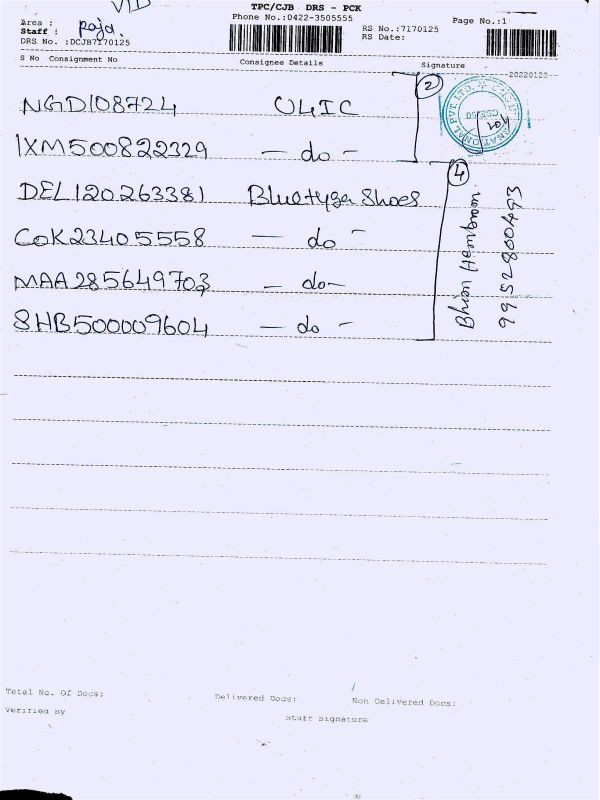 VID
TPC/CJB DRS - PCK
Phone No.:0422-3505555
Page No.:1
Area :
Staff : Raja.
RS No.:7170125
DRS No. :DCJB7170125
RS Date:
S No Consignment No Consignee Details Signature
20220129
NGD108724 U4IC 2
IXM500822329 - do -
DEL120263381 Bluetyga Shoes 4
COK23405558 - do -
MAA285649703 - do -
SHB500009604 - do -
9952800493
Total No. Of Docs: Delivered Docs: Non Delivered Docs:
Verified By
Staff Signature